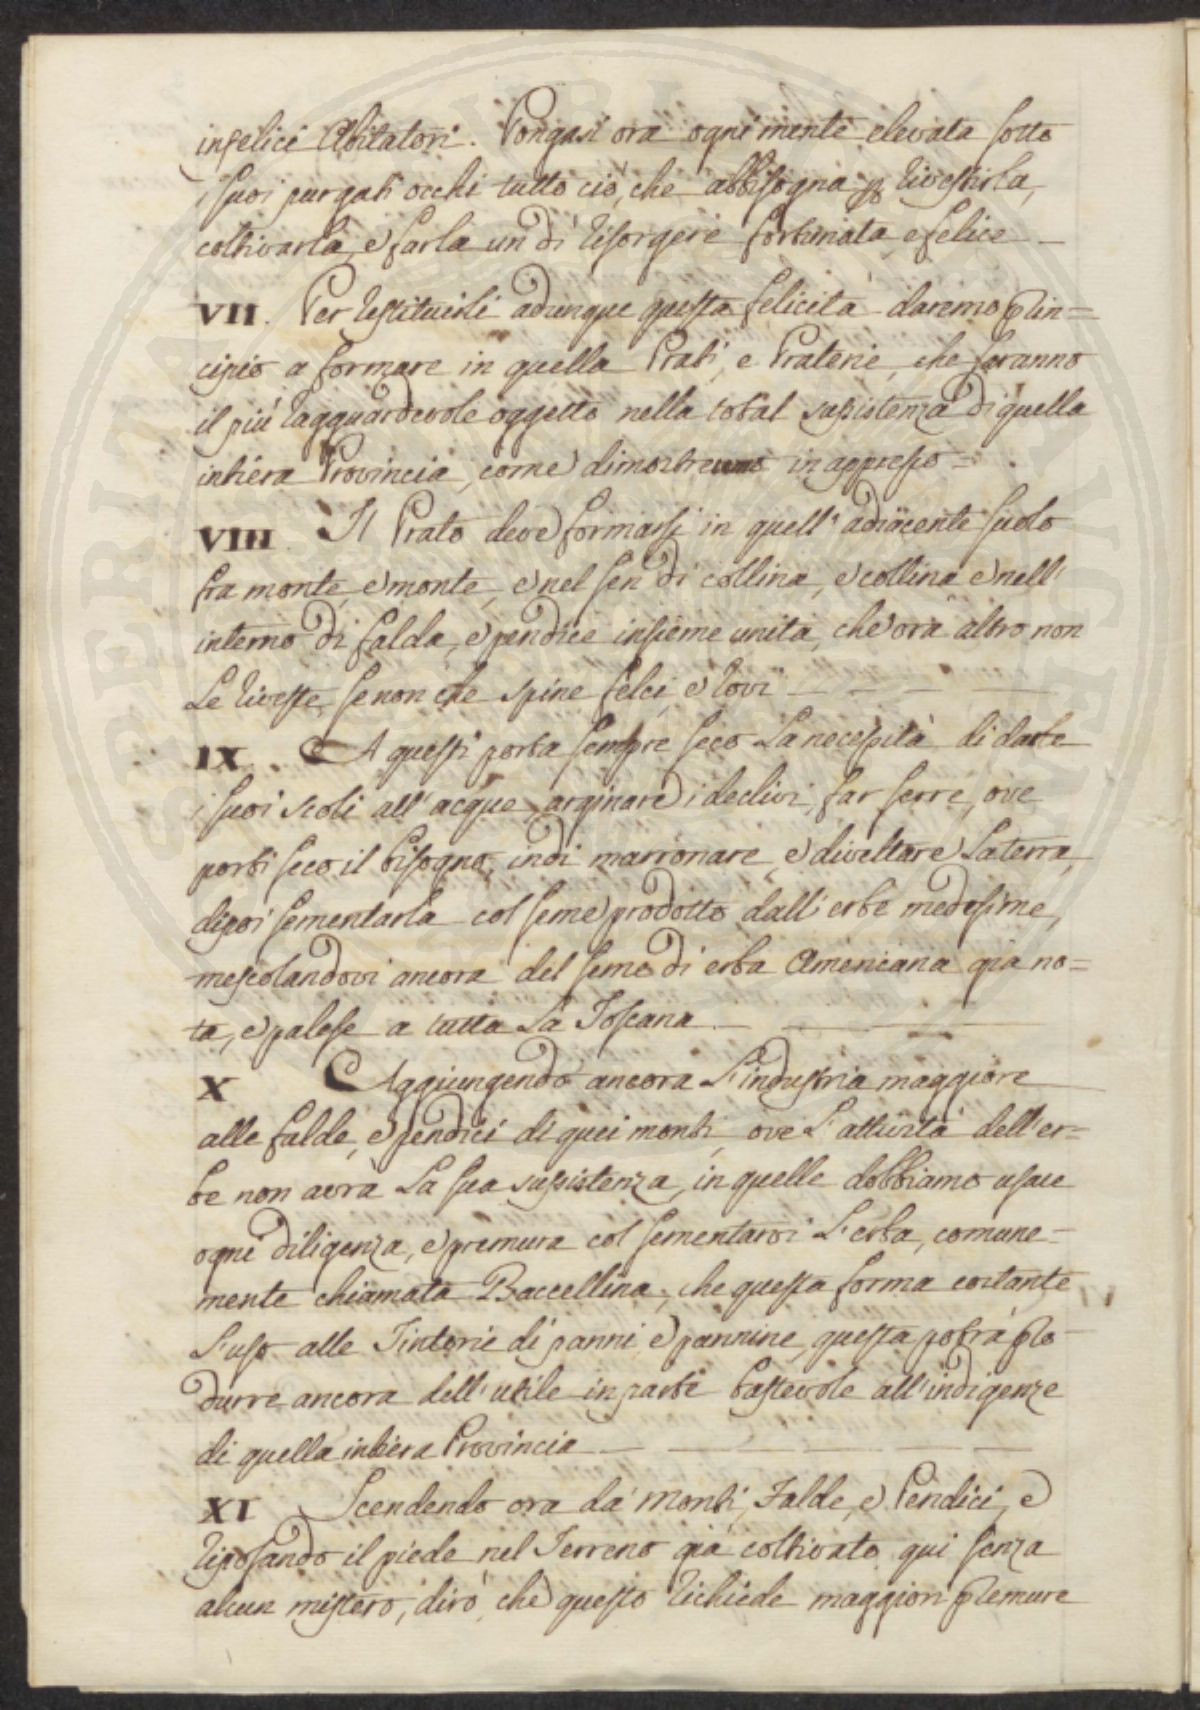 infelici Abitatori. Pongasi ora ogni mente elevata sotto
i suoi purgati occhi tutto ciò, che abbisogna p rivestirla,
coltivarla, e farla un dì risorgere fortunata, e felice —
VII. Per restituirli adunque questa felicità daremo prin=
cipio a formare in quella Prati, e Praterie, che saranno
il più ragguardevole oggetto nella total sussistenza di quella
intiera Provincia, come dimostreremo in appresso =
VIII. Il Prato deve formarsi in quell' adiacente suolo
fra monte, e monte, e nel sen di collina, e collina e nell'
interno di falda, e pendice insieme unita, che ora altro non
Le riveste, se non che spine felci, e rovi —
IX. A questi porta sempre seco La necessità di darle
i suoi scoli all' acque, arginare i declivi, far serre, ove
porti seco il bisogno, indi marronare, e diveltare La terra,
dipoi sementarla col seme prodotto dall' erbe medesime,
mescolandovi ancora del seme di erba Americana già no=
ta, e palese a tutta La Toscana. —
X Aggiungendo ancora L'industria maggiore
alle falde, e pendici di quei monti, ove L'attività dell' er=
be non avrà La sua sussistenza, in quelle dobbiamo usare
ogni diligenza, e premura col sementarvi L'erba, comune=
mente chiamata Baccellina, che questa forma costante
L'uso alle Tintorie di panni, e pannine, questa potrà pro
durre ancora dell' utile in parte bastevole all' indigenze
di quella intiera Provincia —
XI Scendendo ora da' Monti, Falde, e Pendici, e
riposando il piede nel Terreno già coltivato qui senza
alcun mistero, dirò, che questo richiede maggiori premure